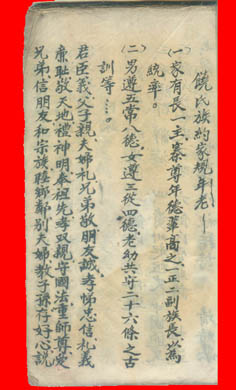 饒氏族約家規年老
(一)家有長一主寨尊年德輩高之一正二副族長以為
統率。
(二)男遵五常八德女遵三從四德老幼共守二十六條之古
訓等……。
君臣義父子親夫婦礼兄弟敬朋友誠孝悌忠信礼義
廉耻敬天地禮神明奉祖先孝双親守國法重師尊愛
兄弟信朋友和宗族睦鄉鄰别夫婦教子孫存好心説